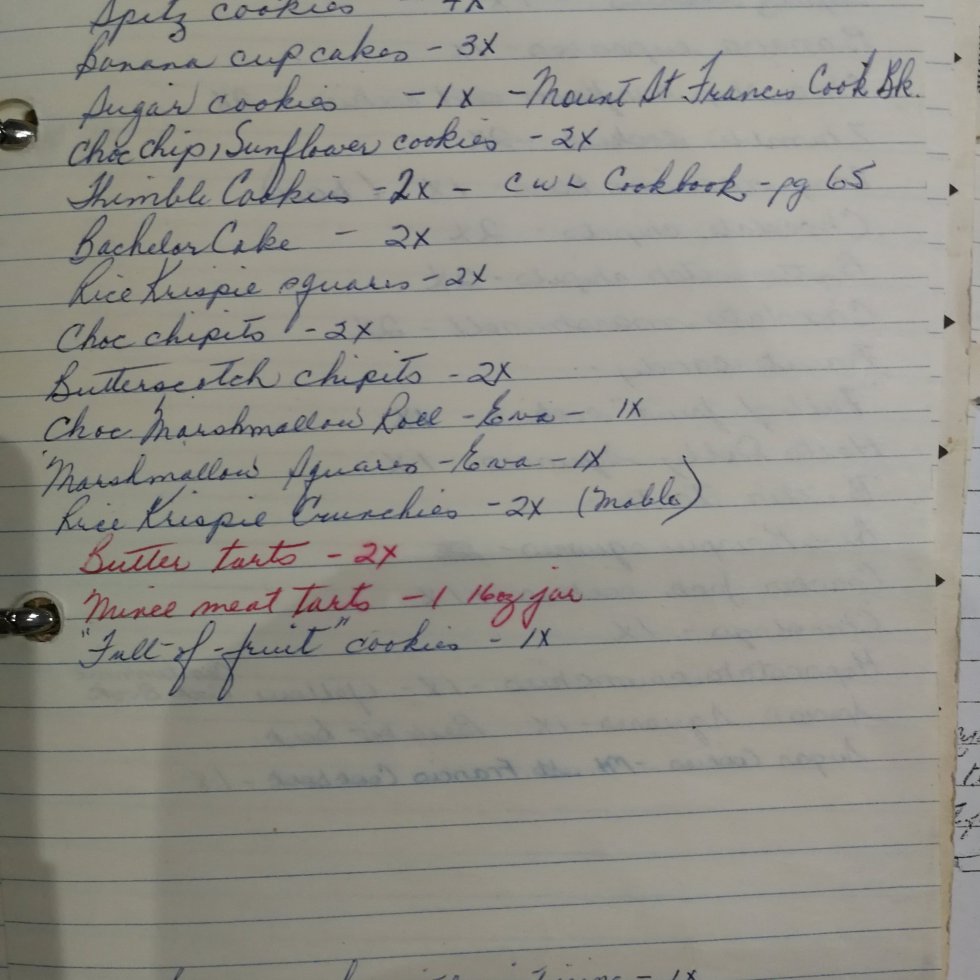 Spitz cookies - 4x
Banana cupcakes - 3x
Sugar cookies - 1x - Mount St Francis Cook Bk.
Choc chip, Sunflower cookies - 2x
Thimble Cookies - 2x - CWL Cookbook - pg 65
Bachelor Cake - 2x
Rice Krispie squares - 2x
Choc chipits - 2x
Butterscotch chipits - 2x
Choc Marshmallow Roll - Eva - 1x
Marshmallow Squares - Eva - 1x
Rice Krispie Crunchies - 2x (Mable)
Butter tarts - 2x
Mince meat tarts - 1 16oz jar
"Full-of-fruit" cookies - 1x
- 1x